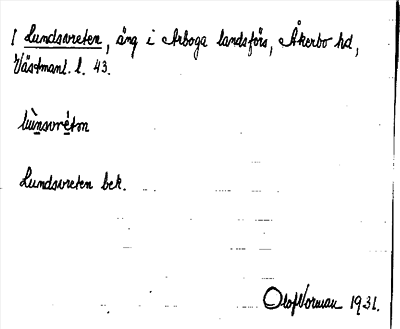 1 Lundsvreten, äng i Arboga landsförs, Åkerbo hd,
Västmanl. l. 43.
Lundsvreten bek.
Olof Norman 1931.